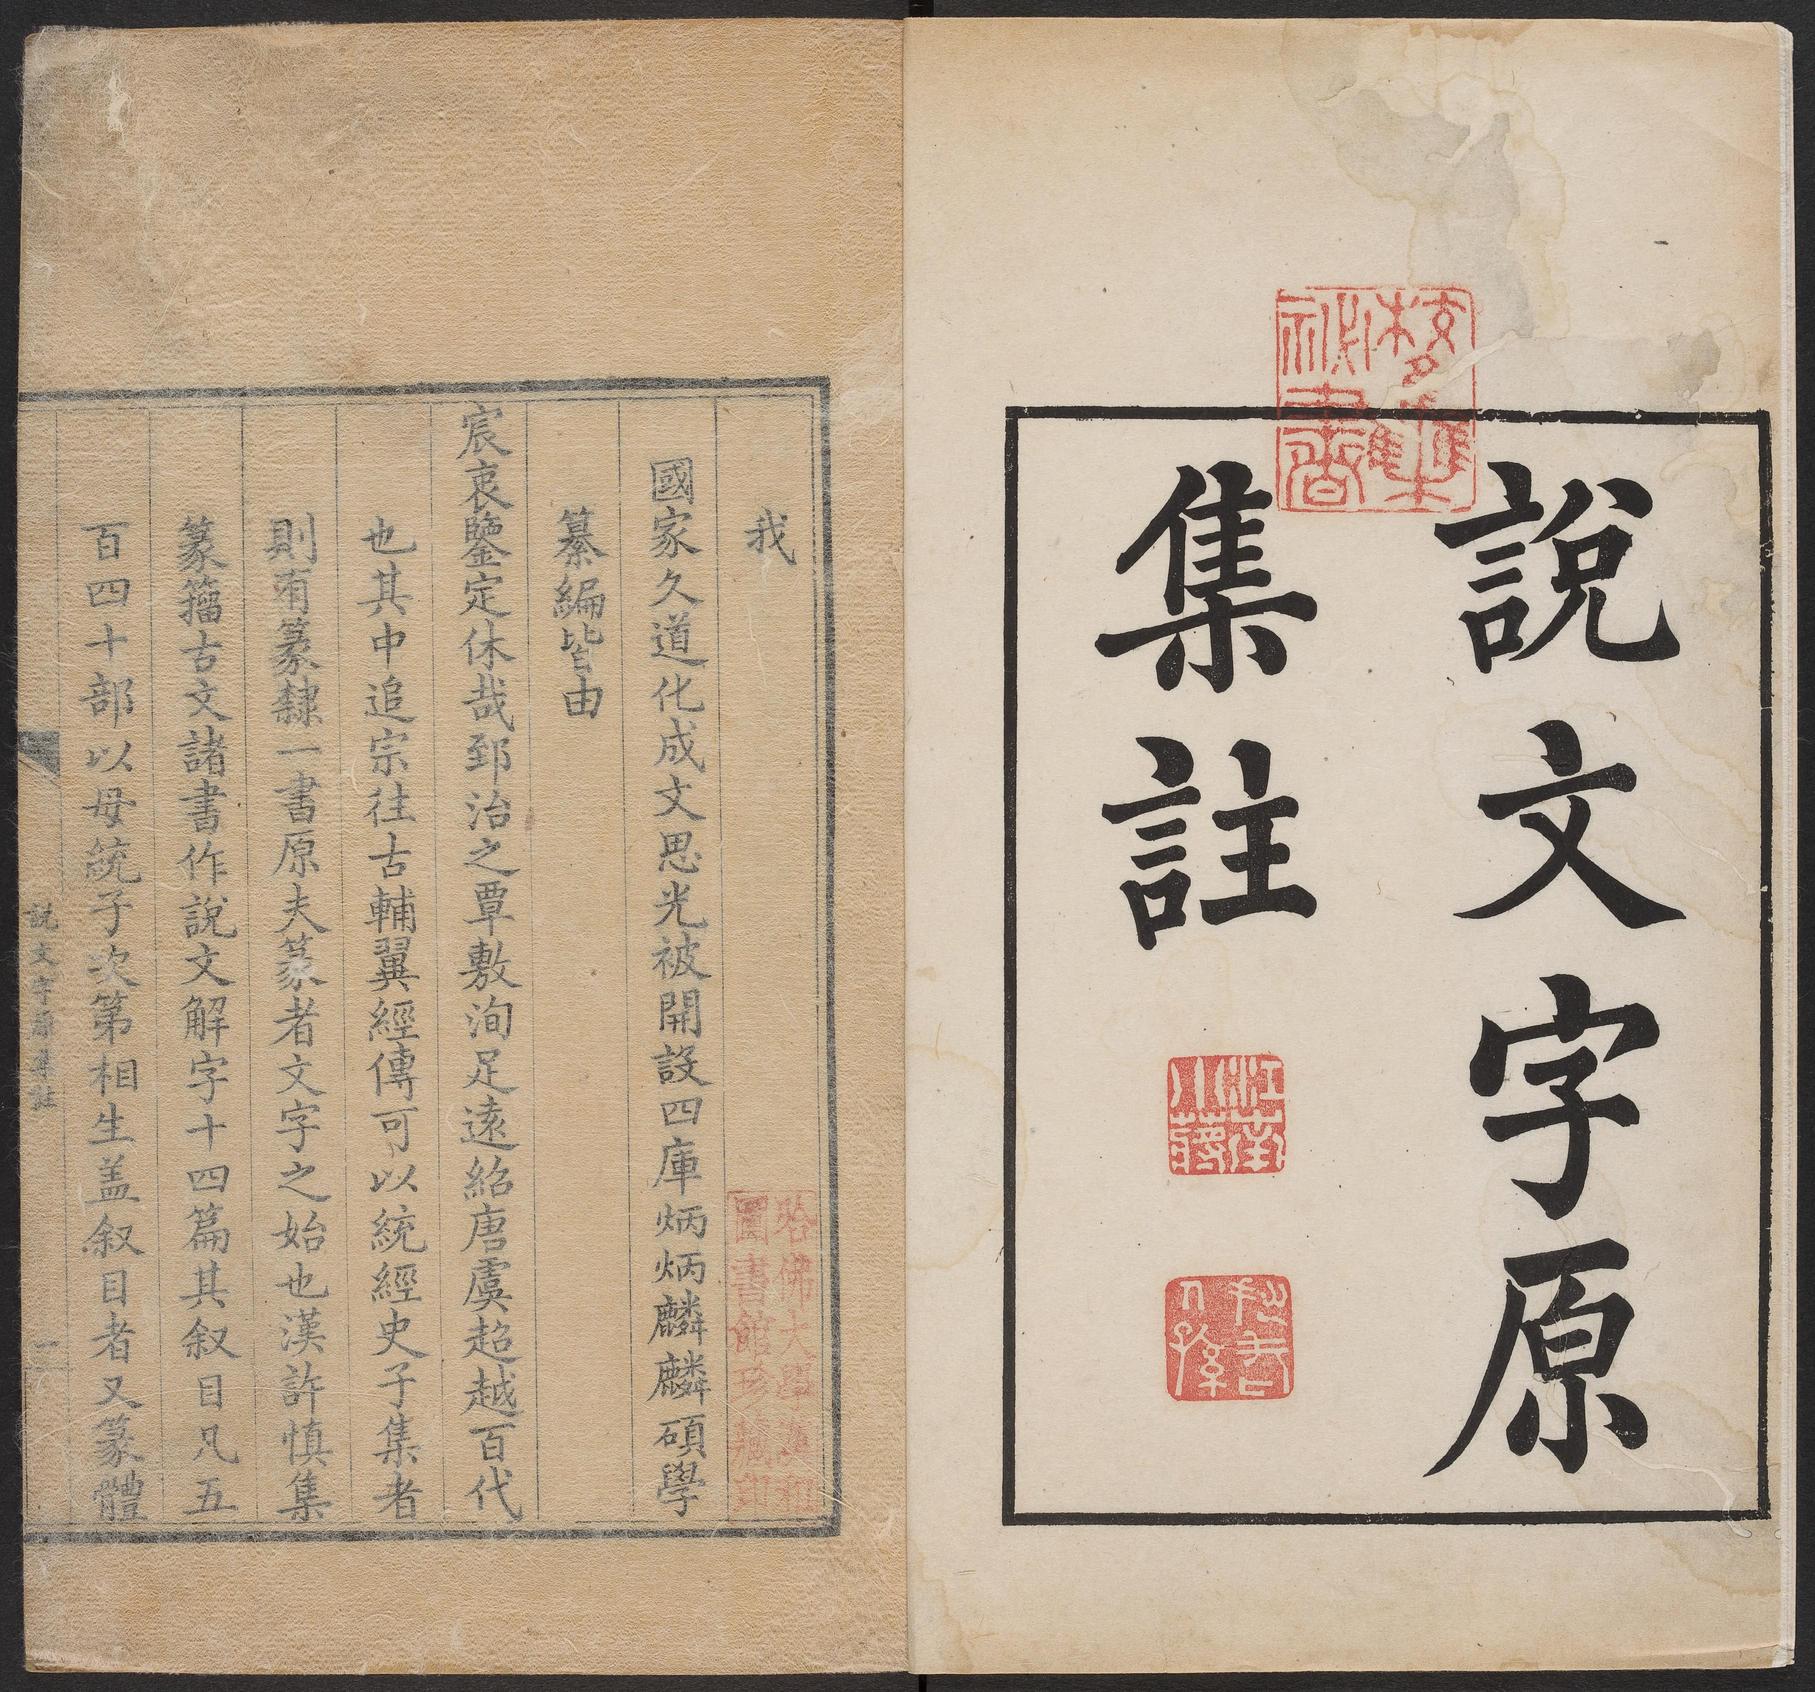 說文字原
集註
我
國家久道化成文思光被開設四庫炳炳麟麟碩學
纂編皆由
宸衷鑒定休哉郅治之覃敷洵足遠紹唐虞超越百代
也其中追宗往古輔翼經傳可以統經史子集者
則有篆隸一書原夫篆者文字之始也漢許慎集
篆籀古文諸書作說文解字十四篇其叙目凡五
百四十部以母統子次第相生盖叙目者又篆體
說文字原集註
一
哈佛大學漢和
圖書館珍藏印